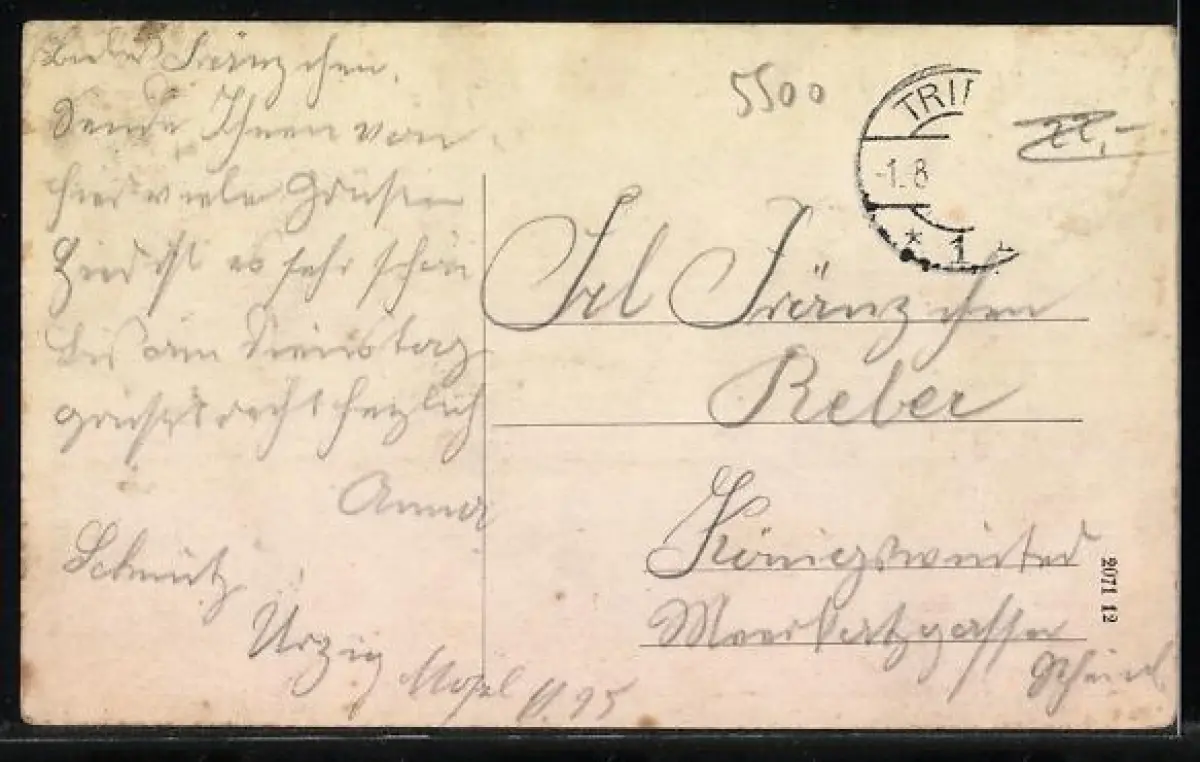 Liebes Fränzchen.
Sende Ihnen von
hier viele Grüße
Hier ist es sehr schön
bis am Dienstag
grüßt recht herzlich
Anna
Schmitz
Ürzig Mosel
5500
TRI
-1.8
* 1 *
Frl Fränzchen
Reber
Königswinter
Meerkatzgasse
Rhein
2071 12